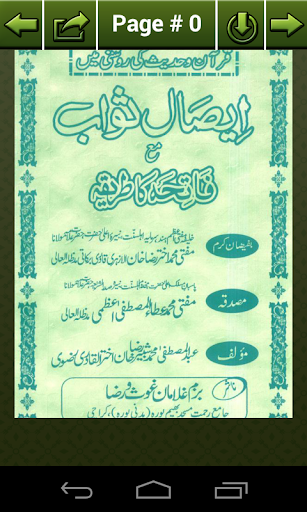 Page # 0
قرآن و حدیث کی روشنی میں
ایصال ثواب
مع
فاتحہ کا طریقہ
بفیضان کرم
مفتی محمد اختر رضا خان الازہری قادری برکاتی مدظلہ العالی
مصدقہ
مفتی محمد عطاء المصطفیٰ اعظمی مدظلہ العالی
مؤلف
عبد المصطفیٰ محمد
اختر القادری رضوی
ناشر
بزم غلامان غوث و رضا
جامع رحمت مسجد بھیم پورہ (مدنی پورہ)، کراچی